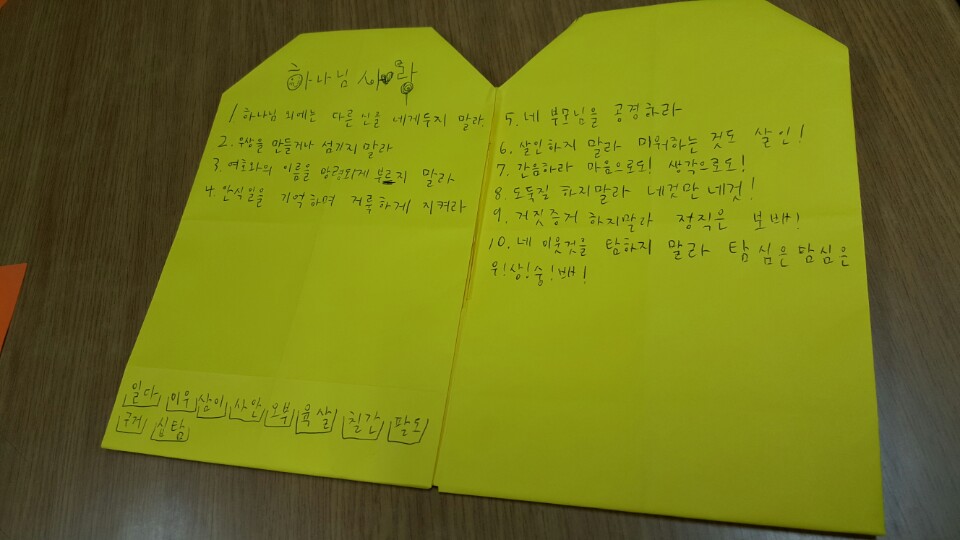 하나님 사랑
1 하나님 외에는 다른 신을 네게두지 말라.
2. 우상을 만들거나 섬기지 말라
3. 여호와의 이름을 망령되게 부르지 말라
4. 안식일을 기억하며 거룩하게 지켜라
일다 미우 삼이 사안 오부 육살 칠간 팔도
구거 십탐
5. 네 부모님을 공경하라
6. 살인하지 말라 미워하는 것도 살인!
7. 간음하라 마음으로도! 생각으로도!
8. 도둑질 하지말라 네것만 네것!
9. 거짓증거 하지말라 정직은 보배!
10. 네 이웃것을 탐하지 말라 탐심은 탐심은
우!상!숭!배!